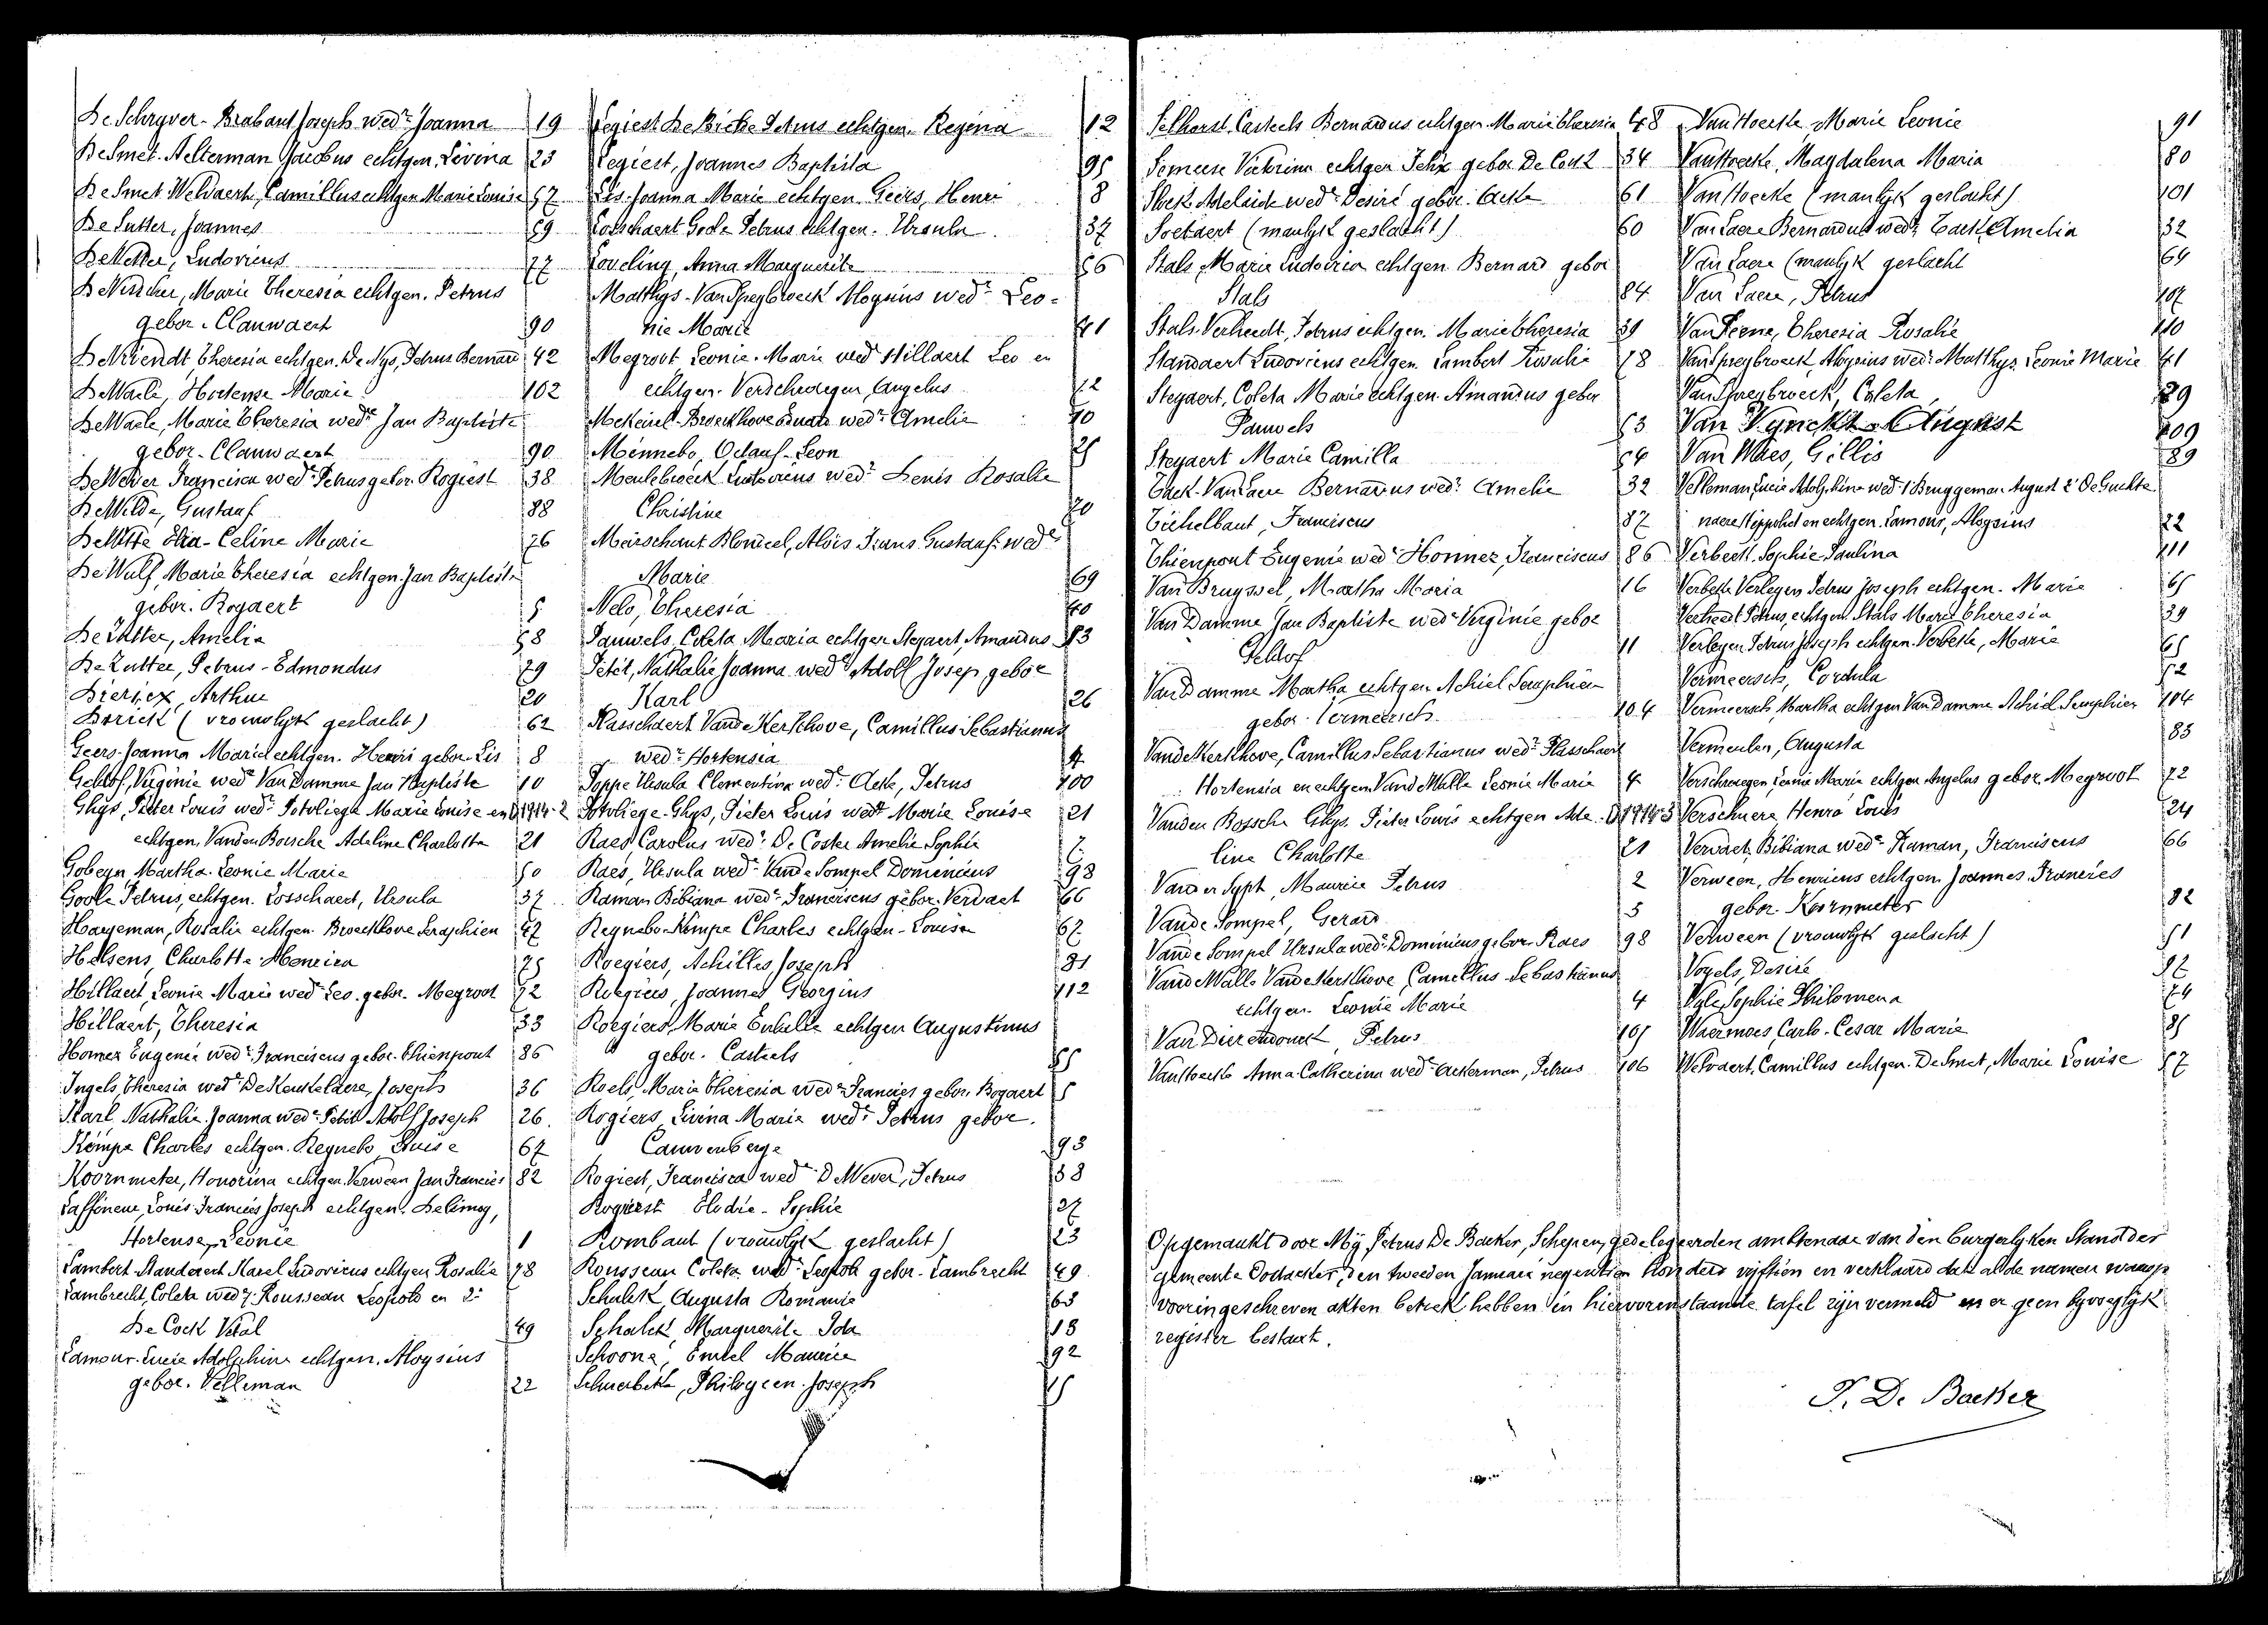 De Schryver-Brabant Joseph wedr Joanna 19
De Smet-Aelterman Jacobus echtgen. Livina 23
De Smet-Welvaert, Camillus echtgen Marie Louise 57
De Sutter, Joannes 59
De Vetter, Ludovicus 77
De Visscher, Marie Theresia echtgen. Petrus
gebor. Clauwaert 90
De Vriendt Theresia echtgen. De Nys, Petrus Bernard 42
De Waele, Hortense Marie 102
De Waele, Marie Theresia wede Jan Baptiste
gebor. Clauwaert 90
De Wever Francisca wede Petrus gebor. Rogiest 38
De Wilde, Gustaaf 88
De Witte Elia-Celine Marie 76
De Wulf, Marie Theresia echtgen. Jan Baptiste
gebor. Bogaert 5
De Zutter, Amelia 58
De Zutter, Petrus-Edmondus 79
Diericx, Arthur 20
Dorick (vrouwlyk geslacht) 62
Geers-Joanna Marie echtgen. Henri gebor. Lis 8
Geldof, Virginie wede Van Damme Jan Baptiste 10
Ghys, Pieter Louis wedr Potvliege Marie Louise en D 1914-2
echtgen. Vanden Bossche Adeline Charlotte 21
Gobeyn Martha-Leonie Marie 50
Goole Petrus, echtgen. Losschaert, Ursula 37
Haegeman, Rosalie echtgen. Broeckhove Seraphien 47
Helsens, Charlotte-Honorina 75
Hillaert, Leonie Marie wede Leo. gebor. Megroot 72
Hillaert, Theresia 33
Homez Eugenie wede Franciscus gebor. Thienpont 86
Ingels, Theresia wede De Keukelaere, Joseph 36
Karl, Nathalie Joanna wede Petit Adolf Joseph 26.
Kempe Charles echtgen. Reynebo, Louise 67
Koornmeter, Honorina echtgen. Verween Jan Francies 82
Laffineur, Louis-Francies Joseph echtgen. Delimoy,
Hortense, Leonie 1
Lambert-Standaert Karel Ludovicus echtgen Rosalie 78
Lambrecht, Coleta wed Rousseau Leopold en 2e
De Cock Vital 49
Lamour-Lucie Adolphine echtgen. Aloysius
gebor. Velleman 22
Legiest De Bicke Petrus echtgen. Regina 12
Legiest, Joannes Baptista 95
Lis-Joanna Marie echtgen. Geers, Henri 8
Losschaert Goole Petrus echtgen. Ursula 37
Loveling, Anna Marguerite 56
Matthys-Van Speybroeck Aloysius wedr Leo-
nie Marie 41
Megroot Leonie-Marie wed Hillaert Leo en
echtgen. Verschraegen, Angelus 72
Broeckhove wedr Amelie 70
Minnebo, Octaaf-Leon 25
Meulebroeck Ludovicus wedr Denis Rosalie
Christine 70
Meirschaut Blondeel, Alois Frans Gustaaf wedr
Marie 69
Nelo, Theresia 40
Pauwels, Coleta Maria echtgen Steyaert, Amandus 53
Petit, Nathalie Joanna wede Adolf Josep. gebor
Karl 26
Plasschaert Vande Kerkhove, Camillus Sebastianus
wedr Hortensia 4
Poppe Ursula Clementina wede Acke, Petrus 100
Potvliege-Ghys, Pieter Louis wedr Marie Louise 21
Raes, Carolus wedr De Coster Amelie Sophie 7.
Raes, Ursula wede Vande Sompel Dominicus 98
Raman Bibiana wede Franciscus gebor. Vervaet 66
Reynebo-Kempe Charles echtgen-Louise 67
Roegiers, Achilles, Joseph 81
Roegiers, Joannes Georgius 112
Roegiers, Marie Eulalie echtgen Augustinus
gebor. Casteels 55
Roels, Marie Theresia wede Francies gebor. Bogaert 5
Rogiers Livina Marie wede Petrus gebor.
Cauwenberge 93
Rogiest, Francisca wede De Wever, Petrus 38
Rogiest Elodie-Sophie 27
Rombaut (vrouwlyk geslacht) 23
Rousseau Coleta wede Leopold gebor. Lambrecht 49
Schalck, Augusta Romanie 63
Schalck, Marguerite Ida 13
Schoone, Emiel Maurice 92
Schuerbeke, Philogeen-Joseph 45
Selhorst-Casteels Bernardus echtgen. Marie Theresia 48
Someese Victorina echtgen Felix gebor. De Cock 34
Sloek Adelaide wede Desiré gebor. Acke 61
Soetaert (manlyk geslacht) 60
Stals, Marie Ludovica echtgen. Bernard gebor
Stals 84
Stals-Verheedt, Petrus echtgen. Marie Theresia 39
Standaert Ludovicus echtgen. Lambert Rosalie 78
Steyaert, Coleta Marie echtgen. Amandus gebor
Pauwels 53
Steyaert Marie Camilla 54
Tack-Van Laere Bernardus wedr Amelie 32
Tichelbaut, Franciscus 87
Thienpont Eugenie wede Homez, Franciscus 86
Van Bruyssel, Martha Maria 16
Van Damme Jan Baptiste wede Virginie gebor
Geldof 11
Van Damme Martha echtgen. Achiel Seraphien
gebor. Vermeersch 104
Vande Kerkhove, Camillus Sebastianus wedr Plasschaert
Hortensia en echtgen. Vande Walle Leonie Marie 4
Vanden Bossche Ghys. Pieter Louis echtgen Ade- D 1914-3
line Charlotte 21
Vander Sypt, Maurice Petrus 2
Vande Sompel, Gerard 3
Vande Sompel Ursula wede Dominicus gebor. Raes 98
Vande Walle Vande Kerkhove, Camillus-Sebastianus
echtgen. Leonie Marie 4
Van Dierendonck, Petrus 105
Van Hoecke Anna-Catherina wede Ackerman, Petrus 106
Van Hoecke, Marie Leonie 91
Van Hoecke, Magdalena Maria 80
Van Hoecke (manlyk geslacht) 101
Van Laere Bernardus wedr Tack, Amelia 32
Van Laere (manlyk geslacht 64
Van Laere, Petrus 107
Van Peene, Theresia Rosalie 110
Van Speybroeck, Aloysius wedr Matthys Leonie Marie 41
Van Speybroeck, Coleta 29
Van Vynckt-August 109
Van Waes, Gillis 89
Velleman Lucie Adolphine wed 1 Bruggeman August 2e De Guchte-
naere Hippoliet en echtgen. Lamour, Aloysius 22
Verbeek-Sophie-Paulina 111
Verbeke Verleyen Petrus Joseph echtgen. Marie 65
Verheedt Petrus, echtgen. Stals Marie Theresia 39
Verleyen Petrus Joseph echtgen. Verbeke, Marie 65
Vermeersch, Cordula 52
Vermeersch, Martha echtgen Van Damme Achiel Seraphien 104
Vermeulen, Augusta 83
Verschraegen, Leonie Marie echtgen Angelus gebor. Megroot 72
Verschuere Henri Louis 24
Vervaet, Bibiana wede Raman, Franciscus 66
Verween, Henricus echtgen. Joannes Francies
gebor. Koornmeter 82
Verween (vrouwlyk geslacht) 51
Vogels, Desire 97
Vyle Sophie Philomena 74
Waermoes, Carlo-Cesar Marie 85
Welvaert, Camillus echtgen. De Smet, Marie Louise 57
Opgemaakt door Mij Petrus De Backer, Schepen, gedelegeerden ambtenaar van den burgerlyken Stand der
gemeente Oostacker, den tweeden Januari negentien honderd vijftien en verklaard dat al de namen waarop
vooringeschreven akten betrek hebben in hiervorenstaande tafel zijn vermeld en er geen byvoeglyk
register bestaat.
P. De Backer